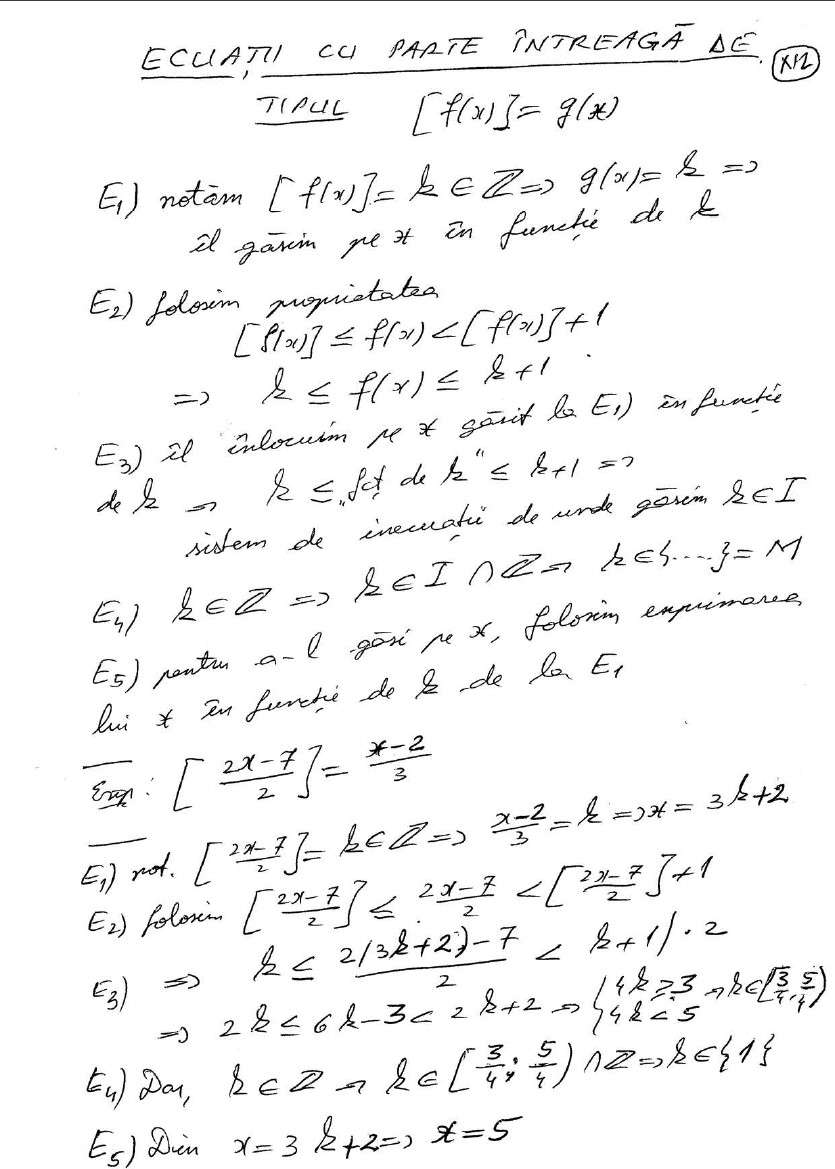 ECUAȚII CU PARTE ÎNTREAGĂ DE
XII
TIPUL [f(x)] = g(x)
E₁) notăm [f(x)] = k ∈ ℤ => g(x) = k =>
îl găsim pe x în funcție de k
E₂) folosim proprietatea
[f(x)] ≤ f(x) < [f(x)] + 1
=> k ≤ f(x) ≤ k+1
E₃) îl înlocuim pe x găsit la E₁) în funcție
de k => k ≤ „fcț de k" ≤ k+1 =>
sistem de inecuații de unde găsim k ∈ I
E₄) k ∈ ℤ => k ∈ I ∩ ℤ => k ∈ {....} = M
E₅) pentru a-l găsi pe x, folosim exprimarea
lui x în funcție de k de la E₁
Exp: [(2x-7)/2] = (x-2)/3
E₁) not. [(2x-7)/2] = k ∈ ℤ => (x-2)/3 = k => x = 3k+2
E₂) folosim [(2x-7)/2] ≤ (2x-7)/2 < [(2x-7)/2] + 1
E₃) => k ≤ (2(3k+2)-7)/2 < k+1 | · 2
=> 2k ≤ 6k-3 < 2k+2 => { 4k ≥ 3 ; 4k < 5 => k ∈ [3/4, 5/4)
E₄) Dar, k ∈ ℤ => k ∈ [3/4; 5/4) ∩ ℤ => k ∈ {1}
E₅) Din x = 3k+2 => x = 5